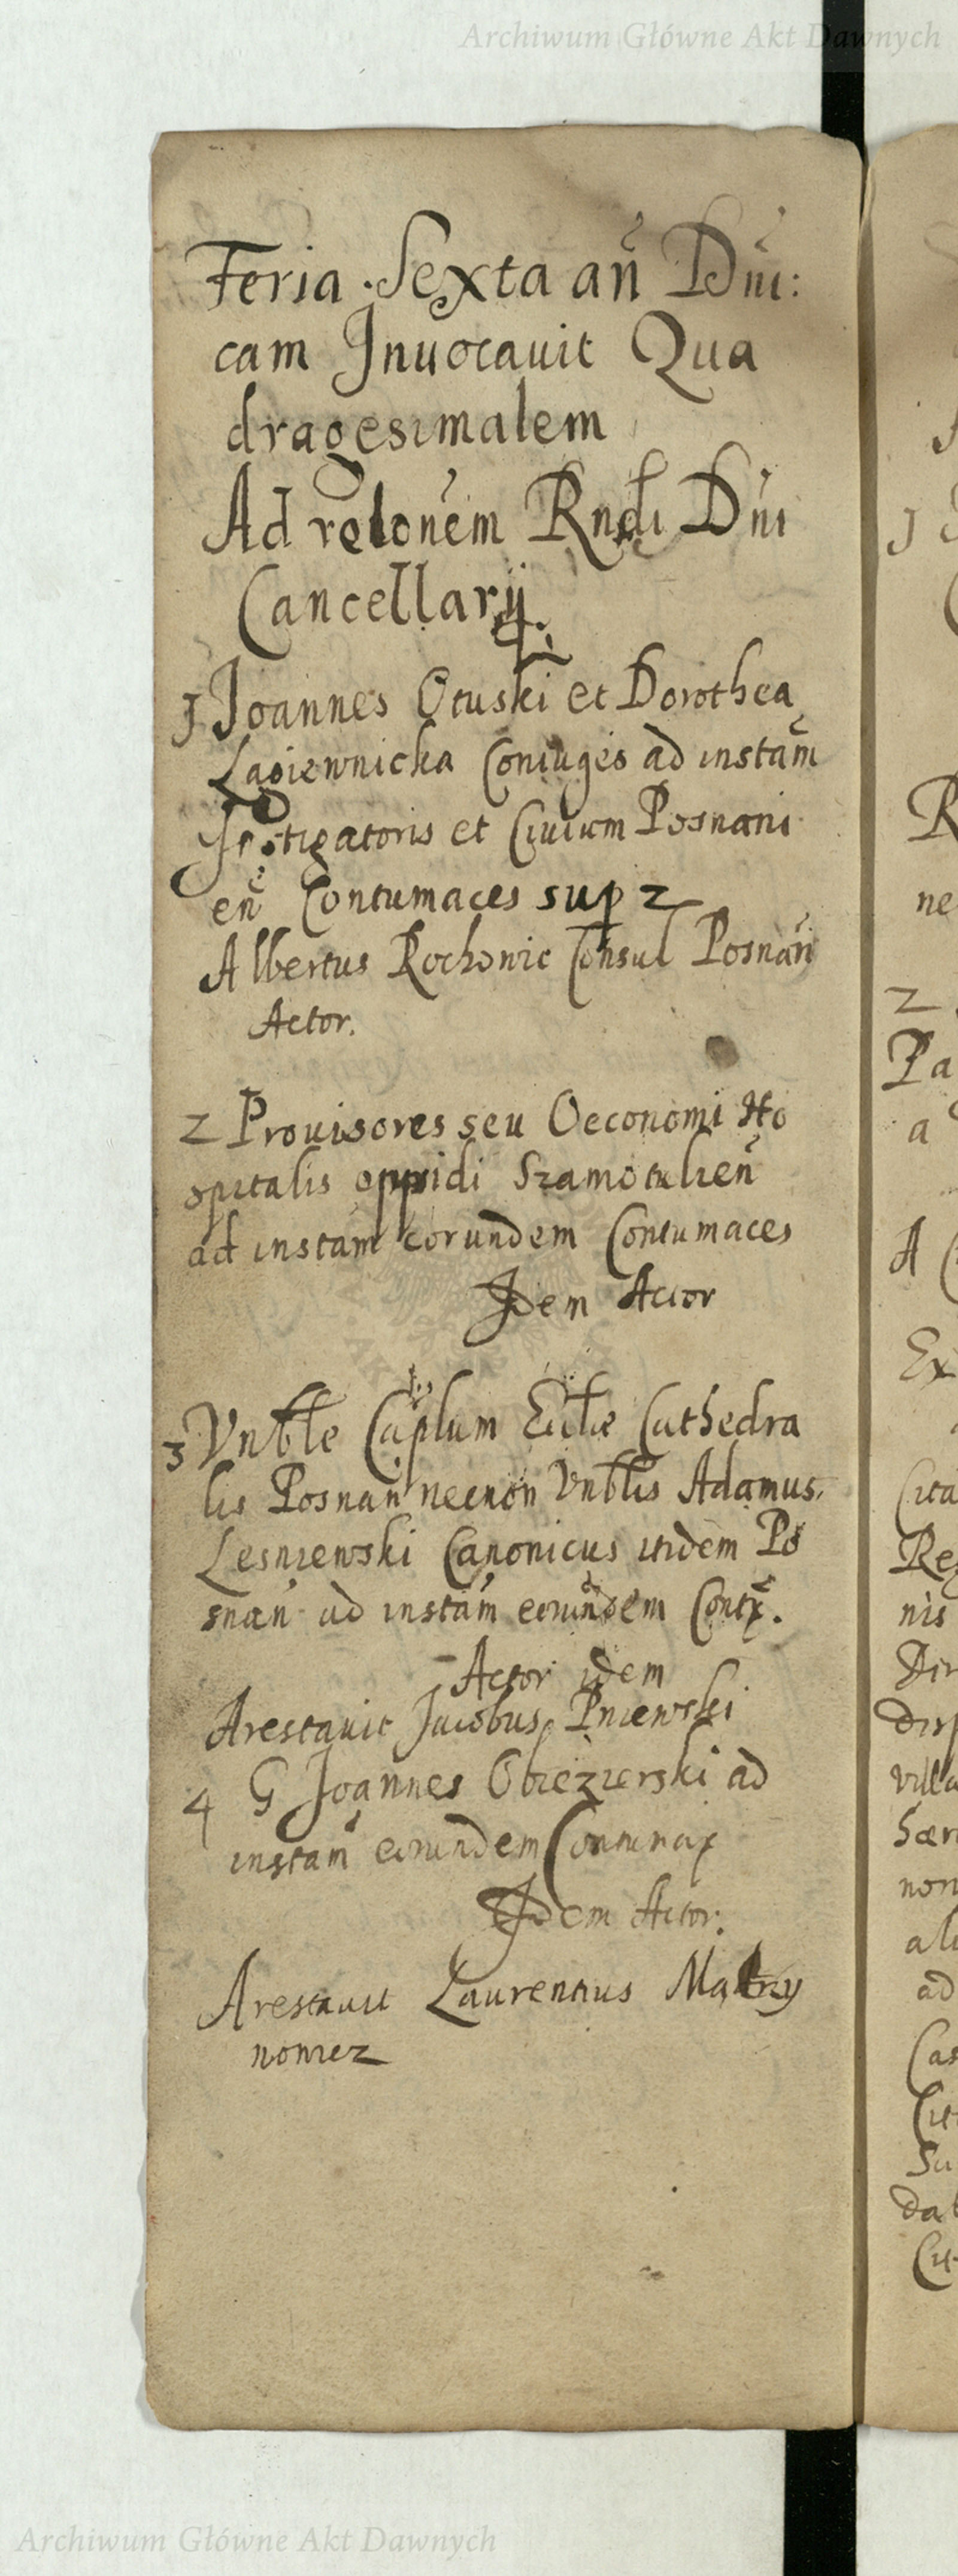 Archiwum Główne Akt Dawnych
Feria Sexta an̄ Dn̄i:
cam Inuocauit Qua
dragesimalem
Ad relonem Rndi Dni
Cancellarij.
1 Joannes Otuski et Dorothea
Lagiewnicka Coniuges ad instam̄
Instigatoris et Ciuium Posnani
en̄ Contumaces sup 2
Albertus Rochowic Consul Posnan̄
Actor.
2 Prouisores seu Oeconomi Ho
spitalis oppidi Szamotulien̄
ad instam eorundem Contumaces
Idem Actor
3 Vnble Caplum Eccliæ Cathedra
lis Posnan necnon Vnblis Adamus
Lesniewski Canonicus itidem Po
snan ad instam eorundem Contx.
Actor idem
Arestauit Jacobus Pniewski
4 G Joannes Obiezierski ad
instan̄ eorundem Contumax
Idem Actor.
Arestauit Laurentius
nowicz
J
R
ne
2
Pa
a
A
Ex
Cita
Re
nis
Dir
disp
villa
hær
non
ali
ad
Cas
Cit
Su
dat
Cit
Archiwum Główne Akt Dawnych